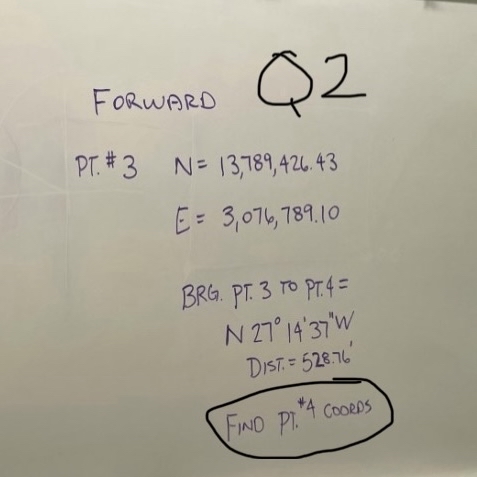 Q2
FORWARD
PT. #3 N= 13,789,426.43
E= 3,076,789.10
BRG. PT. 3 TO PT.4=
N 27° 14' 37" W
DIST.= 528.76'
FIND PT. #4 COORDS